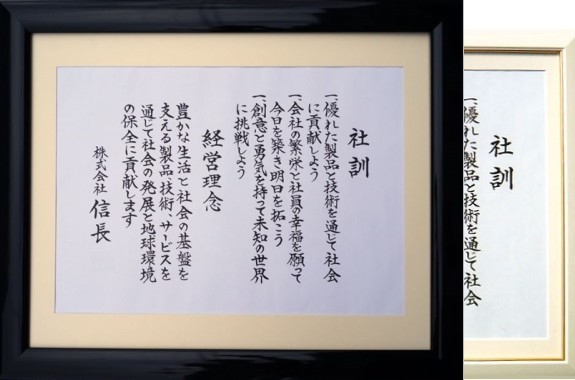 社訓
一、優れた製品と技術を通じて社会
に貢献しよう
一、会社の繁栄と社員の幸福を願って
今日を築き明日を拓こう
一、創意と勇気を持って未知の世界
に挑戦しよう
経営理念
豊かな生活と社会の基盤を
支える製品、技術、サービスを
通じて社会の発展と地球環境
の保全に貢献します
株式会社 信長
社訓
一、優れた製品と技術を通じて社会